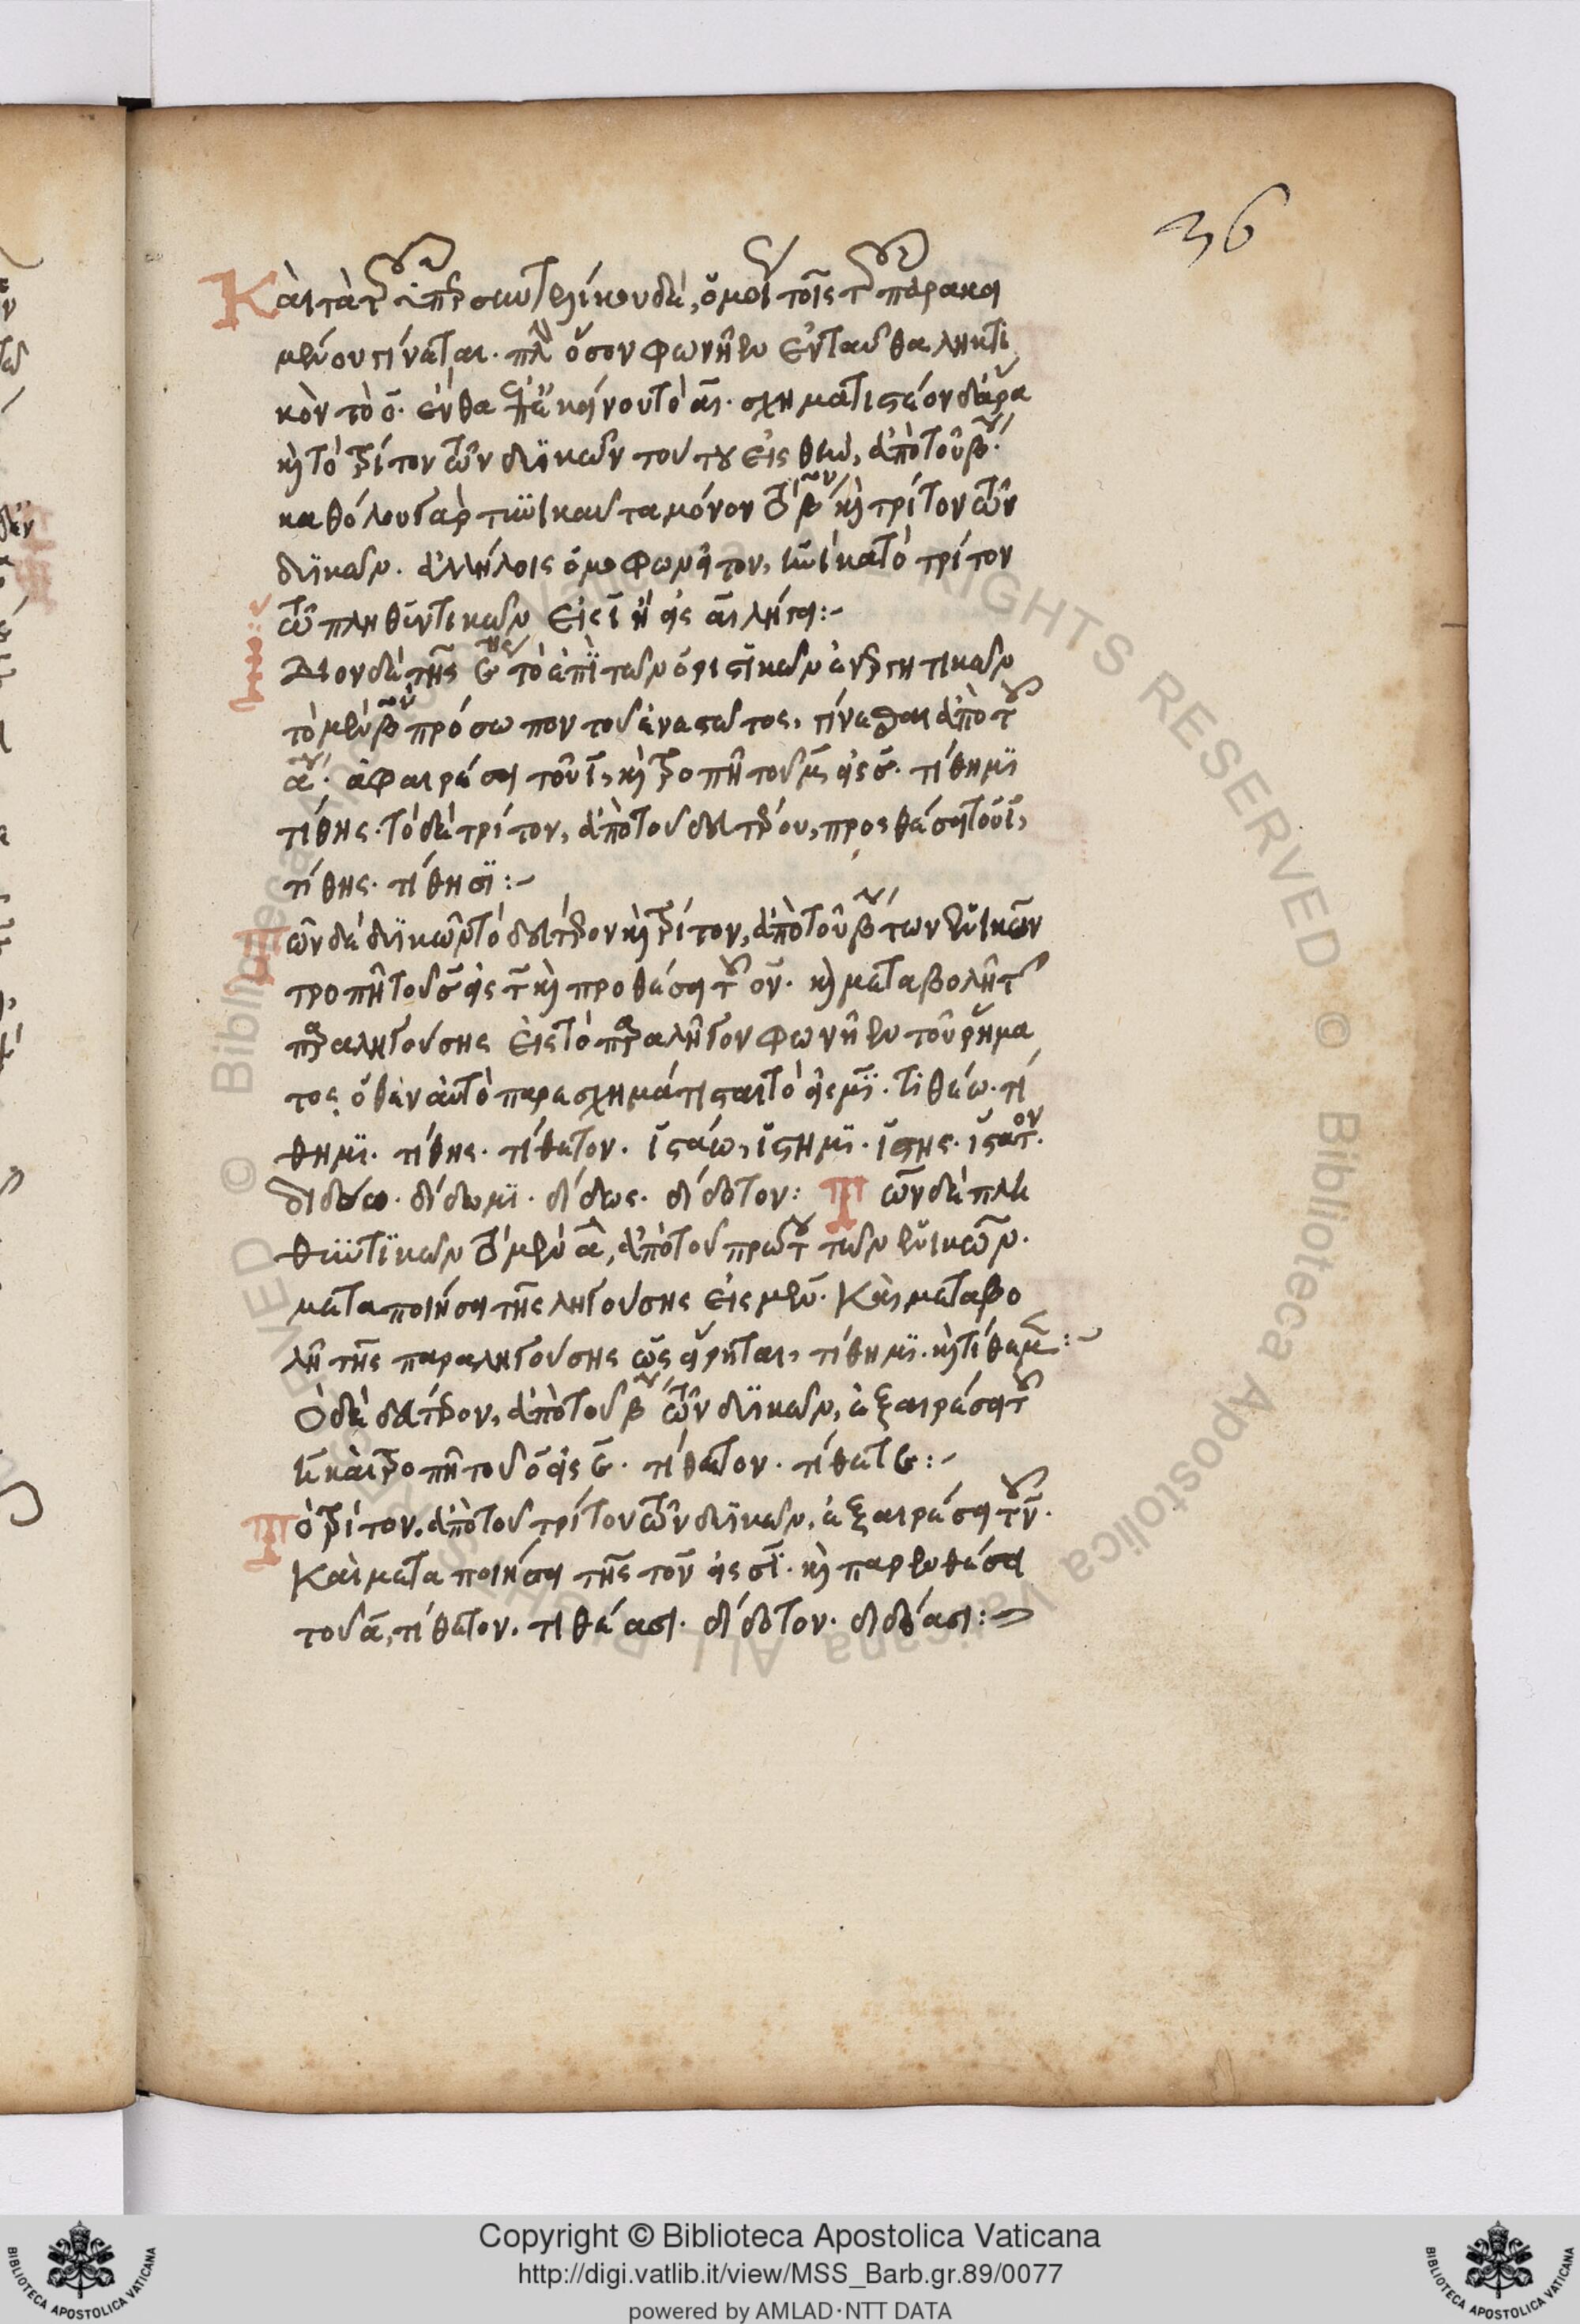 36
Καὶ τὰ τοῦ ὑπερσυντελίκου δὲ, ὁμοίως τοῖς τοῦ παρακει
μένου γίνεται. πλὴν ὅσον φωνῆεν ἐνταῦθα ληκτι
κὸν τὸ ο. ἔνθα ἐπ' ἐκείνου τὸ α. σχηματιστέον δ' ἄρα
καὶ τὸ τρίτον τῶν δυϊκῶν τούτου εἰς θην, ἀπὸ τοῦ β΄.
καθόλου γὰρ ἡνίκα ταμόνον τὸ β΄ον καὶ τρίτον τῶν
δυϊκῶν. ἀλλήλοις ὁμοφωνεῖτον, ἡνίκα τὸ τρίτον
τῶν πληθυντικῶν εἰς ι ἢ εἰς αι λήγει:-
Δέον δὲ τῆς τὸ ἐπὶ τῶν ὁριστικῶν ἐνεργητικῶν
τὸ μὲν β΄ον πρόσωπον τοῦ ἐνεστῶτος, γίνεσθαι ἀπὸ τοῦ
α΄. ἀφαιρέσει τοῦ ι, καὶ τροπῇ τοῦ μ εἰς σ. τίθημι
τίθης. τὸ δὲ τρίτον, ἀπὸ τοῦ δευτέρου, προσθέσει τοῦ ι,
τίθης. τίθησι:-
Τῶν δὲ δυϊκῶν τὸ δεύτερον καὶ τρίτον, ἀπὸ τοῦ β΄ τῶν ἑνικῶν
τροπῇ τοῦ σ εἰς τ καὶ προθέσει τοῦ ον. καὶ μεταβολῇ τῆς
παραληγούσης εἰς τὸ παραλῆγον φωνῆεν τοῦ ῥήμα
τος, ὅθεν αὐτὸ παρεσχημάτισται τὸ εἰς μι. τιθέω. τί
θημι. τίθης. τίθετον. ἱστάω, ἵστημι. ἵστης. ἵστατον.
διδόω. δίδωμι. δίδως. δίδοτον: Τῶν δὲ πλη
θυντικῶν τὸ μὲν α, ἀπὸ τοῦ πρώτου τῶν ἑνικῶν.
μεταποιήσει τῆς ληγούσης εἰς μεν. Καὶ μεταβο
λῇ τῆς παραληγούσης ὡς εἴρηται, τίθημι. καὶ τίθεμεν:-
Τὸ δὲ δεύτερον, ἀπὸ τοῦ β΄ τῶν δυϊκῶν, ἐξαιρέσει τοῦ
ν καὶ τροπῇ τοῦ ο εἰς ε. τίθετον. τίθετε:-
Τὸ τρίτον. ἀπὸ τοῦ τρίτου τῶν δυϊκῶν, ἐξαιρέσει τοῦ ν.
Καὶ μεταποιήσει τῆς τον εἰς σι. καὶ παρενθέσει
τοῦ α, τίθετον. τιθέασι. δίδοτον. διδόασι:-
Copyright © Biblioteca Apostolica Vaticana
http://digi.vatlib.it/view/MSS_Barb.gr.89/0077
powered by AMLAD·NTT DATA